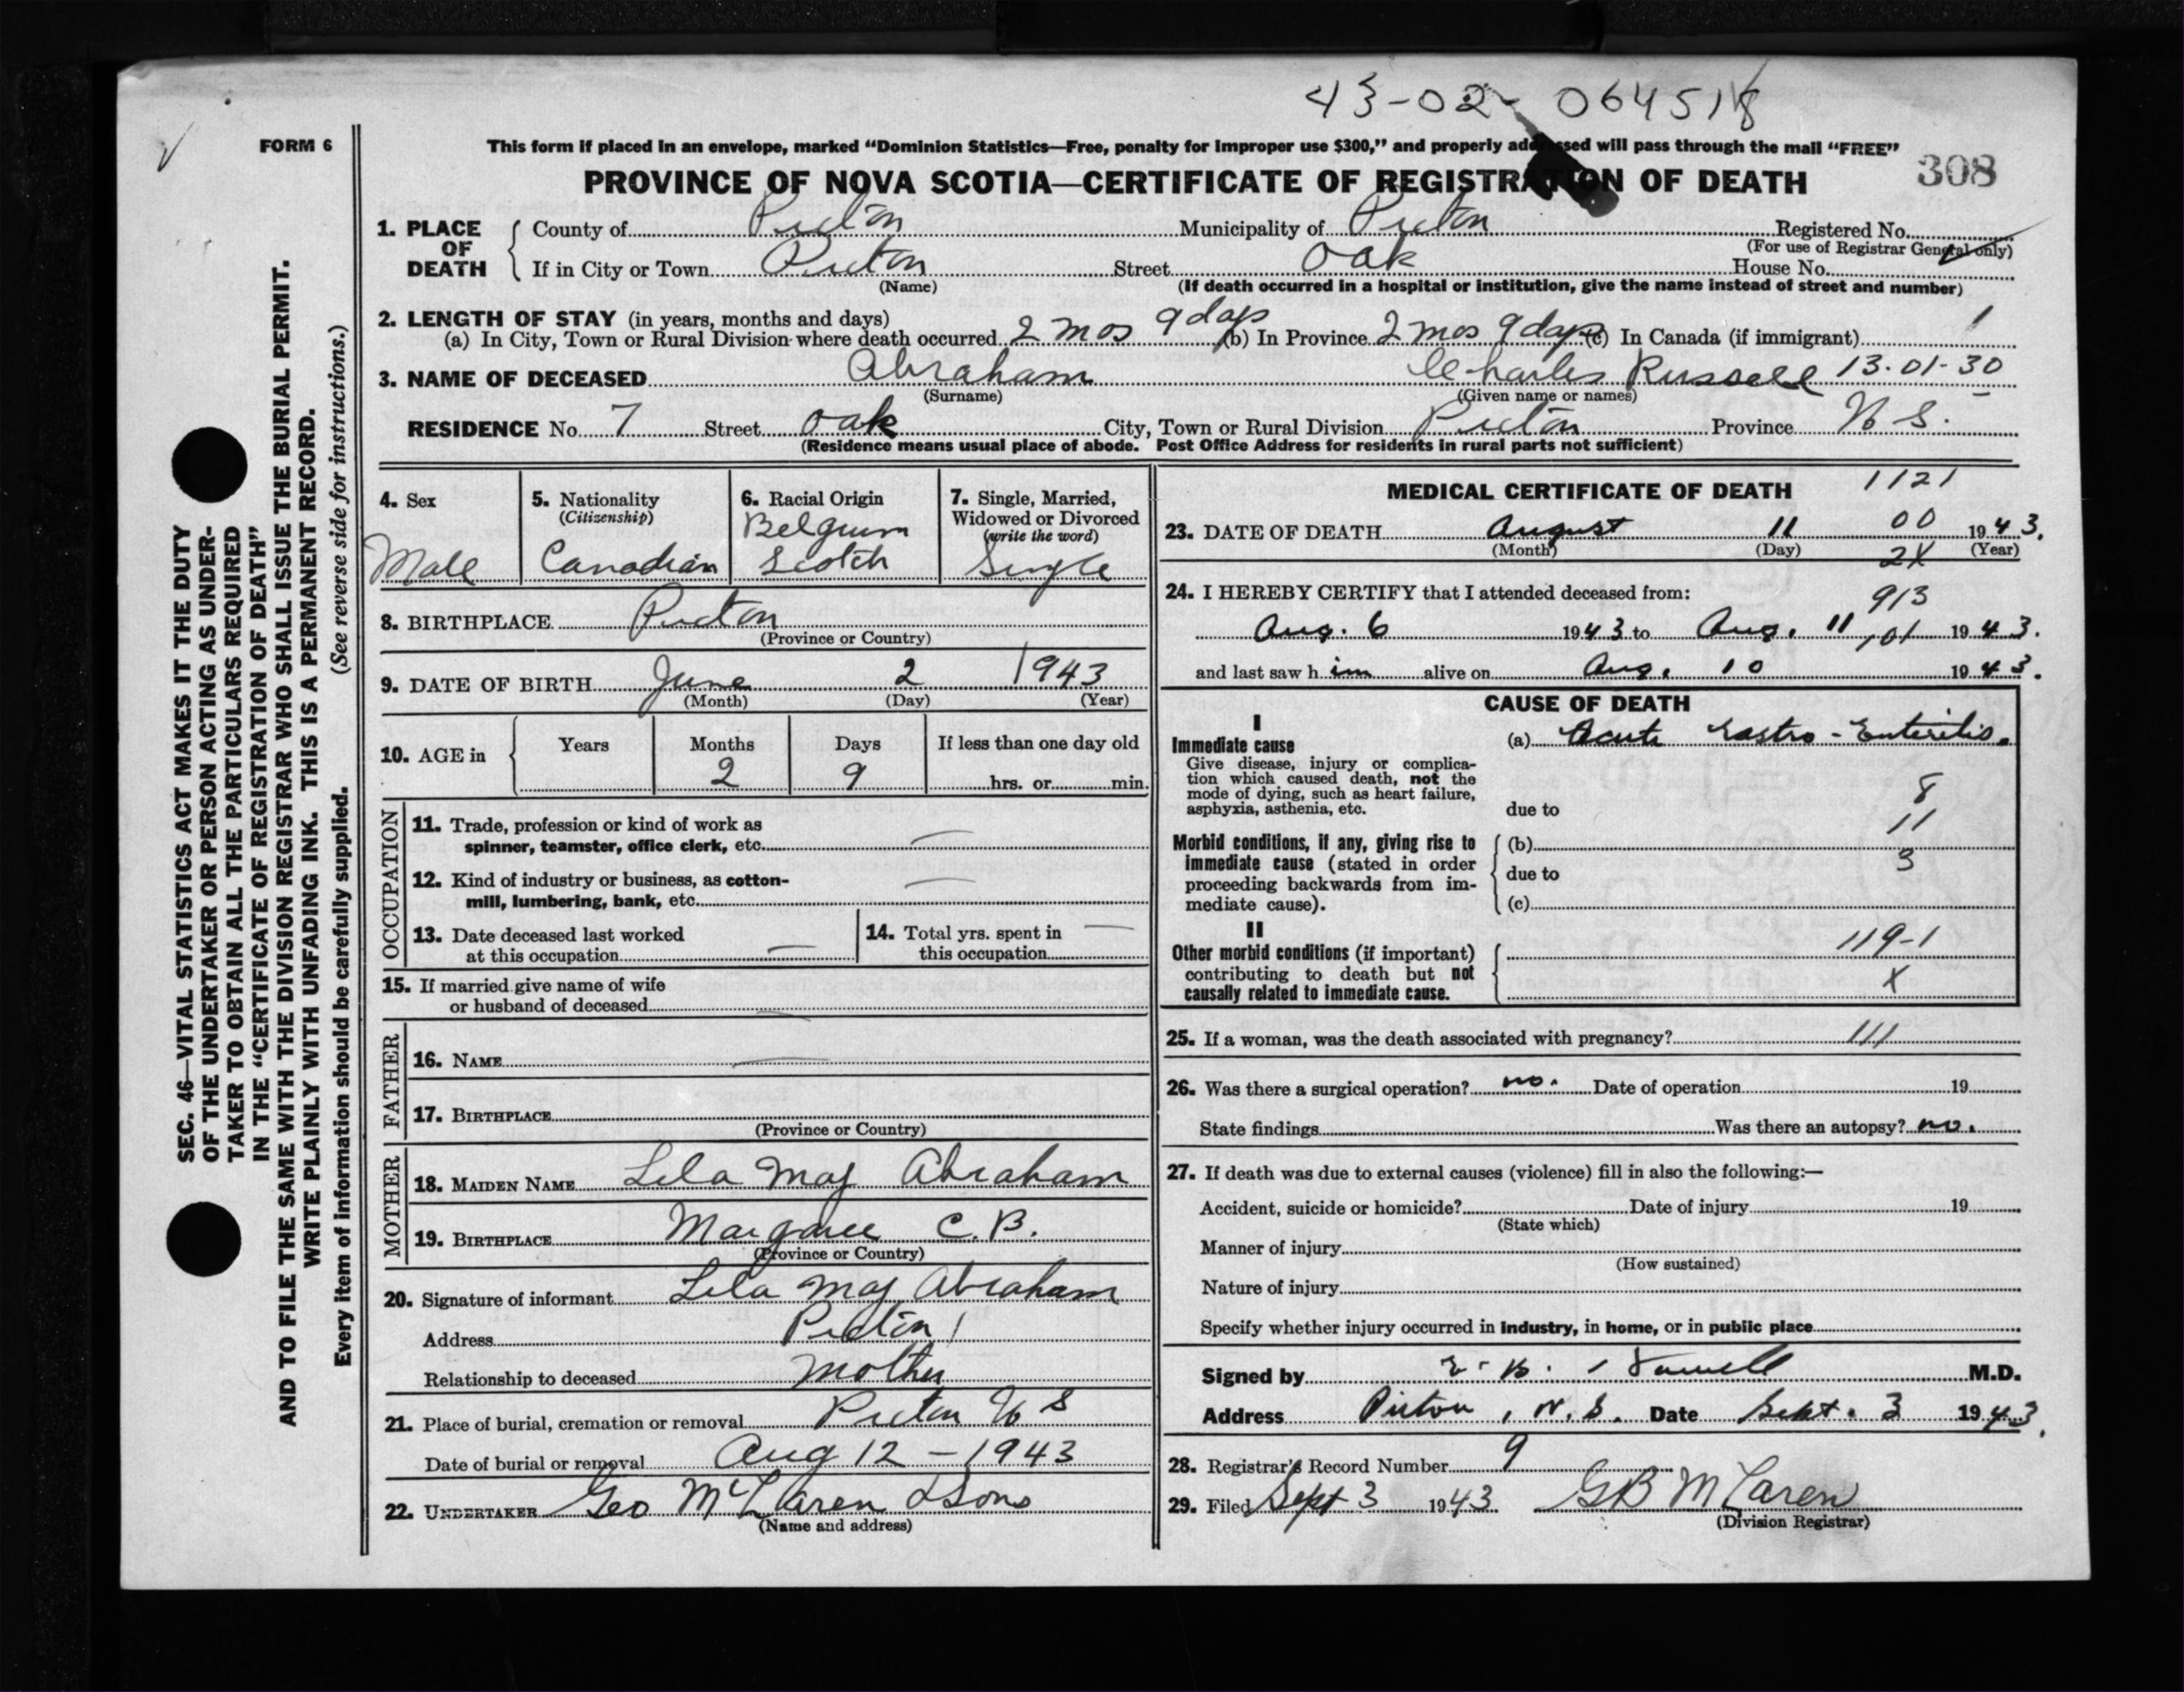 43-02-064518
FORM 6
This form if placed in an envelope, marked "Dominion Statistics—Free, penalty for improper use $300," and properly addressed will pass through the mail "FREE"
308
PROVINCE OF NOVA SCOTIA—CERTIFICATE OF REGISTRATION OF DEATH
1. PLACE OF DEATH
County of Pictou Municipality of Pictou Registered No.
(For use of Registrar General only)
If in City or Town Pictou Street Oak House No.
(Name) (If death occurred in a hospital or institution, give the name instead of street and number)
2. LENGTH OF STAY (in years, months and days)
(a) In City, Town or Rural Division where death occurred 2 mos 9 days (b) In Province 2 mos 9 days (c) In Canada (if immigrant) 1
3. NAME OF DECEASED Abraham Charles Russell 13-01-30
(Surname) (Given name or names)
RESIDENCE No. 7 Street Oak City, Town or Rural Division Pictou Province N S.
(Residence means usual place of abode. Post Office Address for residents in rural parts not sufficient)
SEC. 46—VITAL STATISTICS ACT MAKES IT THE DUTY
OF THE UNDERTAKER OR PERSON ACTING AS UNDER-
TAKER TO OBTAIN ALL THE PARTICULARS REQUIRED
IN THE "CERTIFICATE OF REGISTRATION OF DEATH"
AND TO FILE THE SAME WITH THE DIVISION REGISTRAR WHO SHALL ISSUE THE BURIAL PERMIT.
WRITE PLAINLY WITH UNFADING INK. THIS IS A PERMANENT RECORD.
Every item of information should be carefully supplied. (See reverse side for instructions.)
4. Sex
Male
5. Nationality
(Citizenship)
Canadian
6. Racial Origin
Belgium
Scotch
7. Single, Married,
Widowed or Divorced
(write the word)
Single
8. BIRTHPLACE Pictou
(Province or Country)
9. DATE OF BIRTH June 2 1943
(Month) (Day) (Year)
10. AGE in
Years Months Days If less than one day old
2 9 hrs. or min.
OCCUPATION
11. Trade, profession or kind of work as
spinner, teamster, office clerk, etc. —
12. Kind of industry or business, as cotton-
mill, lumbering, bank, etc. —
13. Date deceased last worked
at this occupation —
14. Total yrs. spent in
this occupation —
15. If married give name of wife
or husband of deceased —
FATHER
16. NAME —
17. BIRTHPLACE
(Province or Country)
MOTHER
18. MAIDEN NAME Lela May Abraham
19. BIRTHPLACE Margaree C.B.
(Province or Country)
20. Signature of informant Lela May Abraham
Address Pictou
Relationship to deceased Mother
21. Place of burial, cremation or removal Pictou N S
Date of burial or removal Aug 12 - 1943
22. UNDERTAKER Geo McLaren & Sons
(Name and address)
MEDICAL CERTIFICATE OF DEATH 1121
23. DATE OF DEATH August 11 00 1943.
(Month) (Day) 2X (Year)
24. I HEREBY CERTIFY that I attended deceased from:
913
Aug. 6 1943 to Aug. 11 101 1943.
and last saw h im alive on Aug. 10 1943.
CAUSE OF DEATH
I
Immediate cause
Give disease, injury or complica-
tion which caused death, not the
mode of dying, such as heart failure,
asphyxia, asthenia, etc.
(a) Acute Gastro-Enteritis.
8
due to
11
Morbid conditions, if any, giving rise to
immediate cause (stated in order
proceeding backwards from im-
mediate cause).
(b)
3
due to
(c)
II
Other morbid conditions (if important)
contributing to death but not
causally related to immediate cause.
119-1
X
25. If a woman, was the death associated with pregnancy? 111
26. Was there a surgical operation? no. Date of operation 19
State findings Was there an autopsy? no.
27. If death was due to external causes (violence) fill in also the following:—
Accident, suicide or homicide? Date of injury 19
(State which)
Manner of injury
(How sustained)
Nature of injury
Specify whether injury occurred in industry, in home, or in public place
Signed by M.D.
Address Pictou, N.S. Date Sept. 3 1943.
28. Registrar's Record Number 9
29. Filed Sept 3 1943 GB McLaren
(Division Registrar)